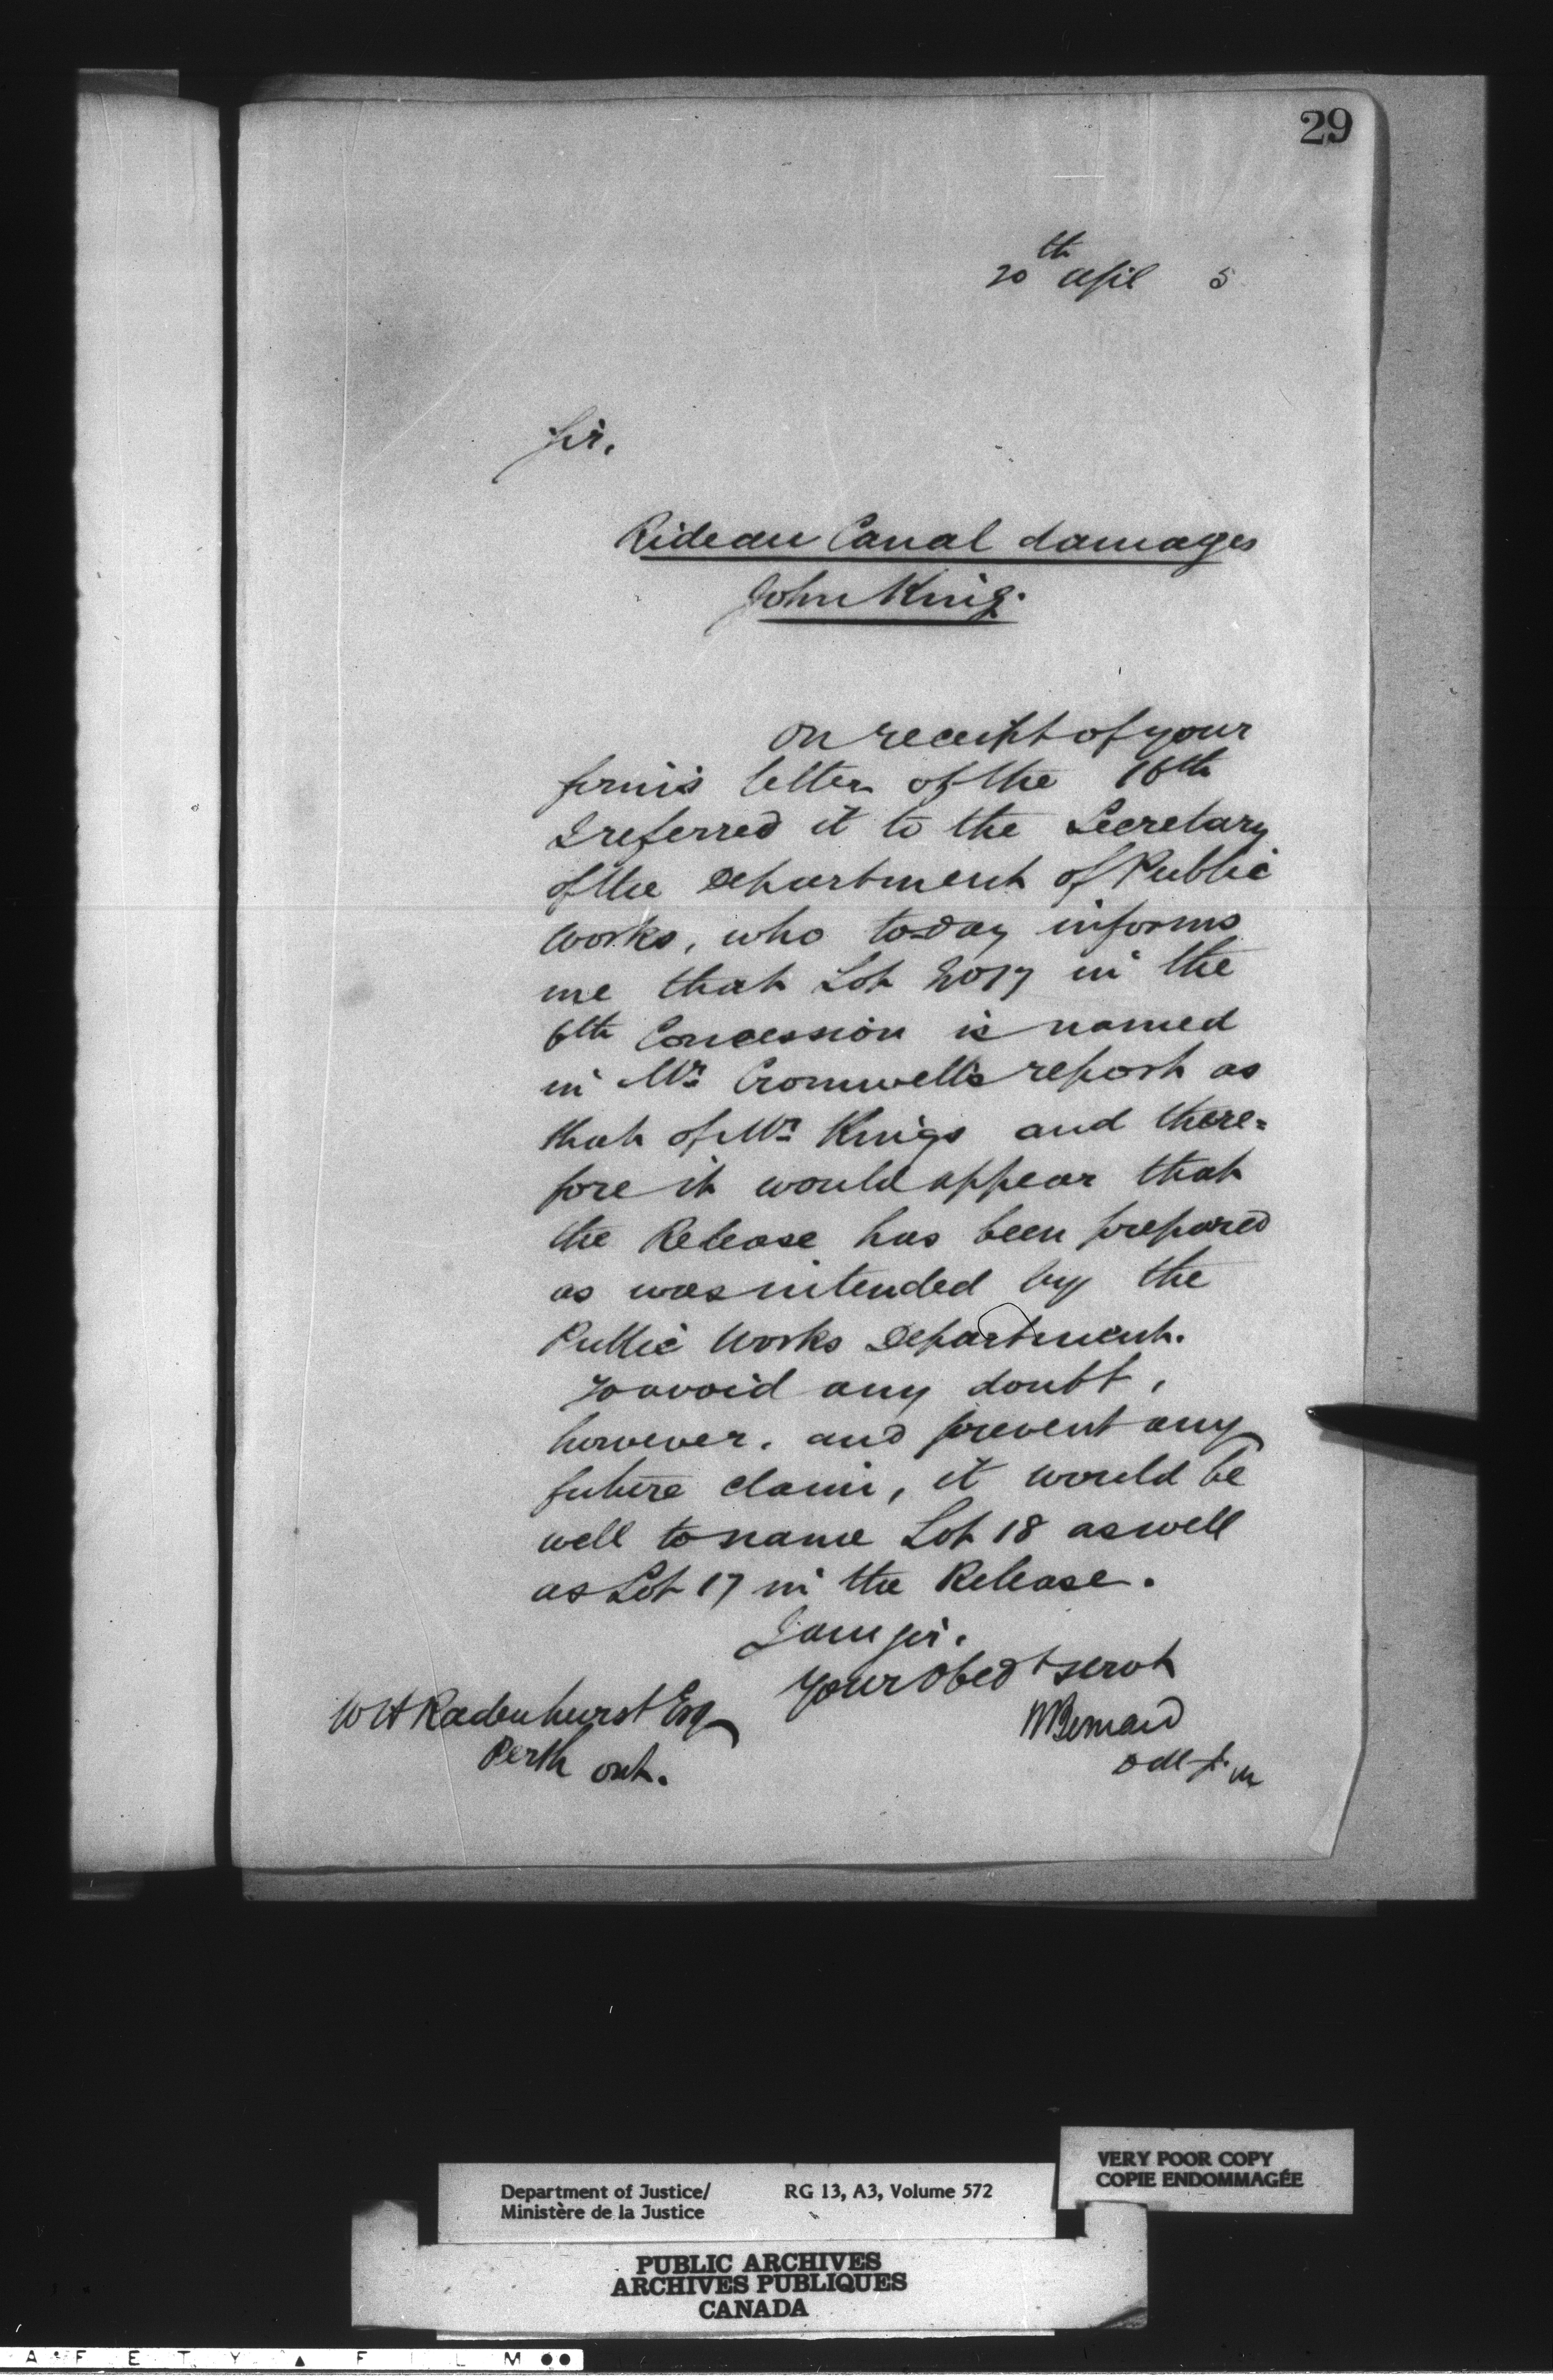 29
20th April 5
Sir,
Rideau Canal damages
John King.
On receipt of your
firm's letter of the 16th
I referred it to the Secretary
of the Department of Public
Works, who today informs
me that Lot No 17 in the
6th Concession is named
in Mr Cromwell's report as
that of Mr Kings and there=
fore it would appear that
the Release has been prepared
as was intended by the
Public Works Department.
To avoid any doubt,
however, and prevent any
future claim, it would be
well to name Lot 18 as well
as Lot 17 in the Release.
I am Sir,
Your Obedt servt
H Bernard
D M J.
W H Radenhurst Esq
Perth Ont.
Department of Justice/ RG 13, A3, Volume 572
Ministère de la Justice
VERY POOR COPY
COPIE ENDOMMAGÉE
PUBLIC ARCHIVES
ARCHIVES PUBLIQUES
CANADA
A F E T Y ▲ F I L M ●●